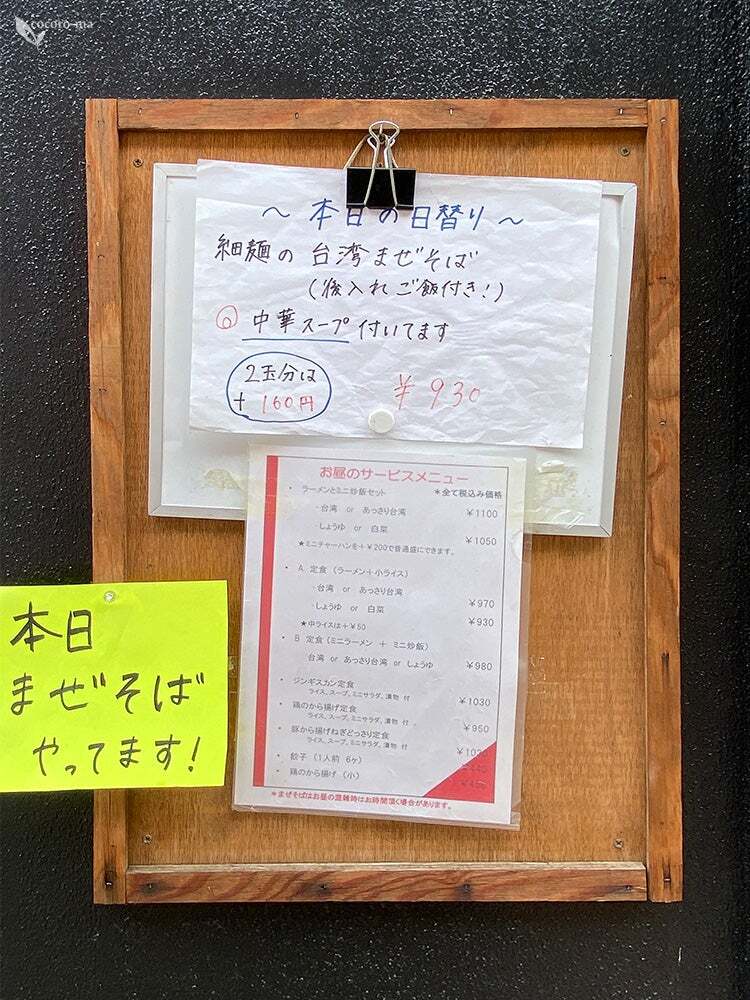 cocoro-ma
～ 本日の日替り ～
細麺の 台湾まぜそば
(後入れご飯付き!)
◎ 中華スープ付いてます
2玉分は
+ 160円
¥930
お昼のサービスメニュー
・ ラーメンとミニ炒飯セット ＊全て税込み価格
・台湾 or あっさり台湾 ¥1100
・しょうゆ or 白菜 ¥1050
★ミニチャーハンを＋¥200で普通盛にできます。
・ A 定食 (ラーメン＋小ライス)
・台湾 or あっさり台湾 ¥970
・しょうゆ or 白菜 ¥930
★中ライスは＋¥50
・ B 定食 (ミニラーメン ＋ ミニ炒飯)
台湾 or あっさり台湾 or しょうゆ ¥980
・ ジンギスカン定食 ¥1030
ライス、スープ、ミニサラダ、漬物 付
・ 鶏のから揚げ定食 ¥950
ライス、スープ、ミニサラダ、漬物 付 。
・ 豚から揚げねぎどっさり定食
ライス、スープ、ミニサラダ、漬物 付
・ 餃子 (1人前 6ヶ)
・ 鶏のから揚げ (小)
＊まぜそばはお昼の混雑時はお時間頂く場合があります。
本日
まぜそば
やってます!